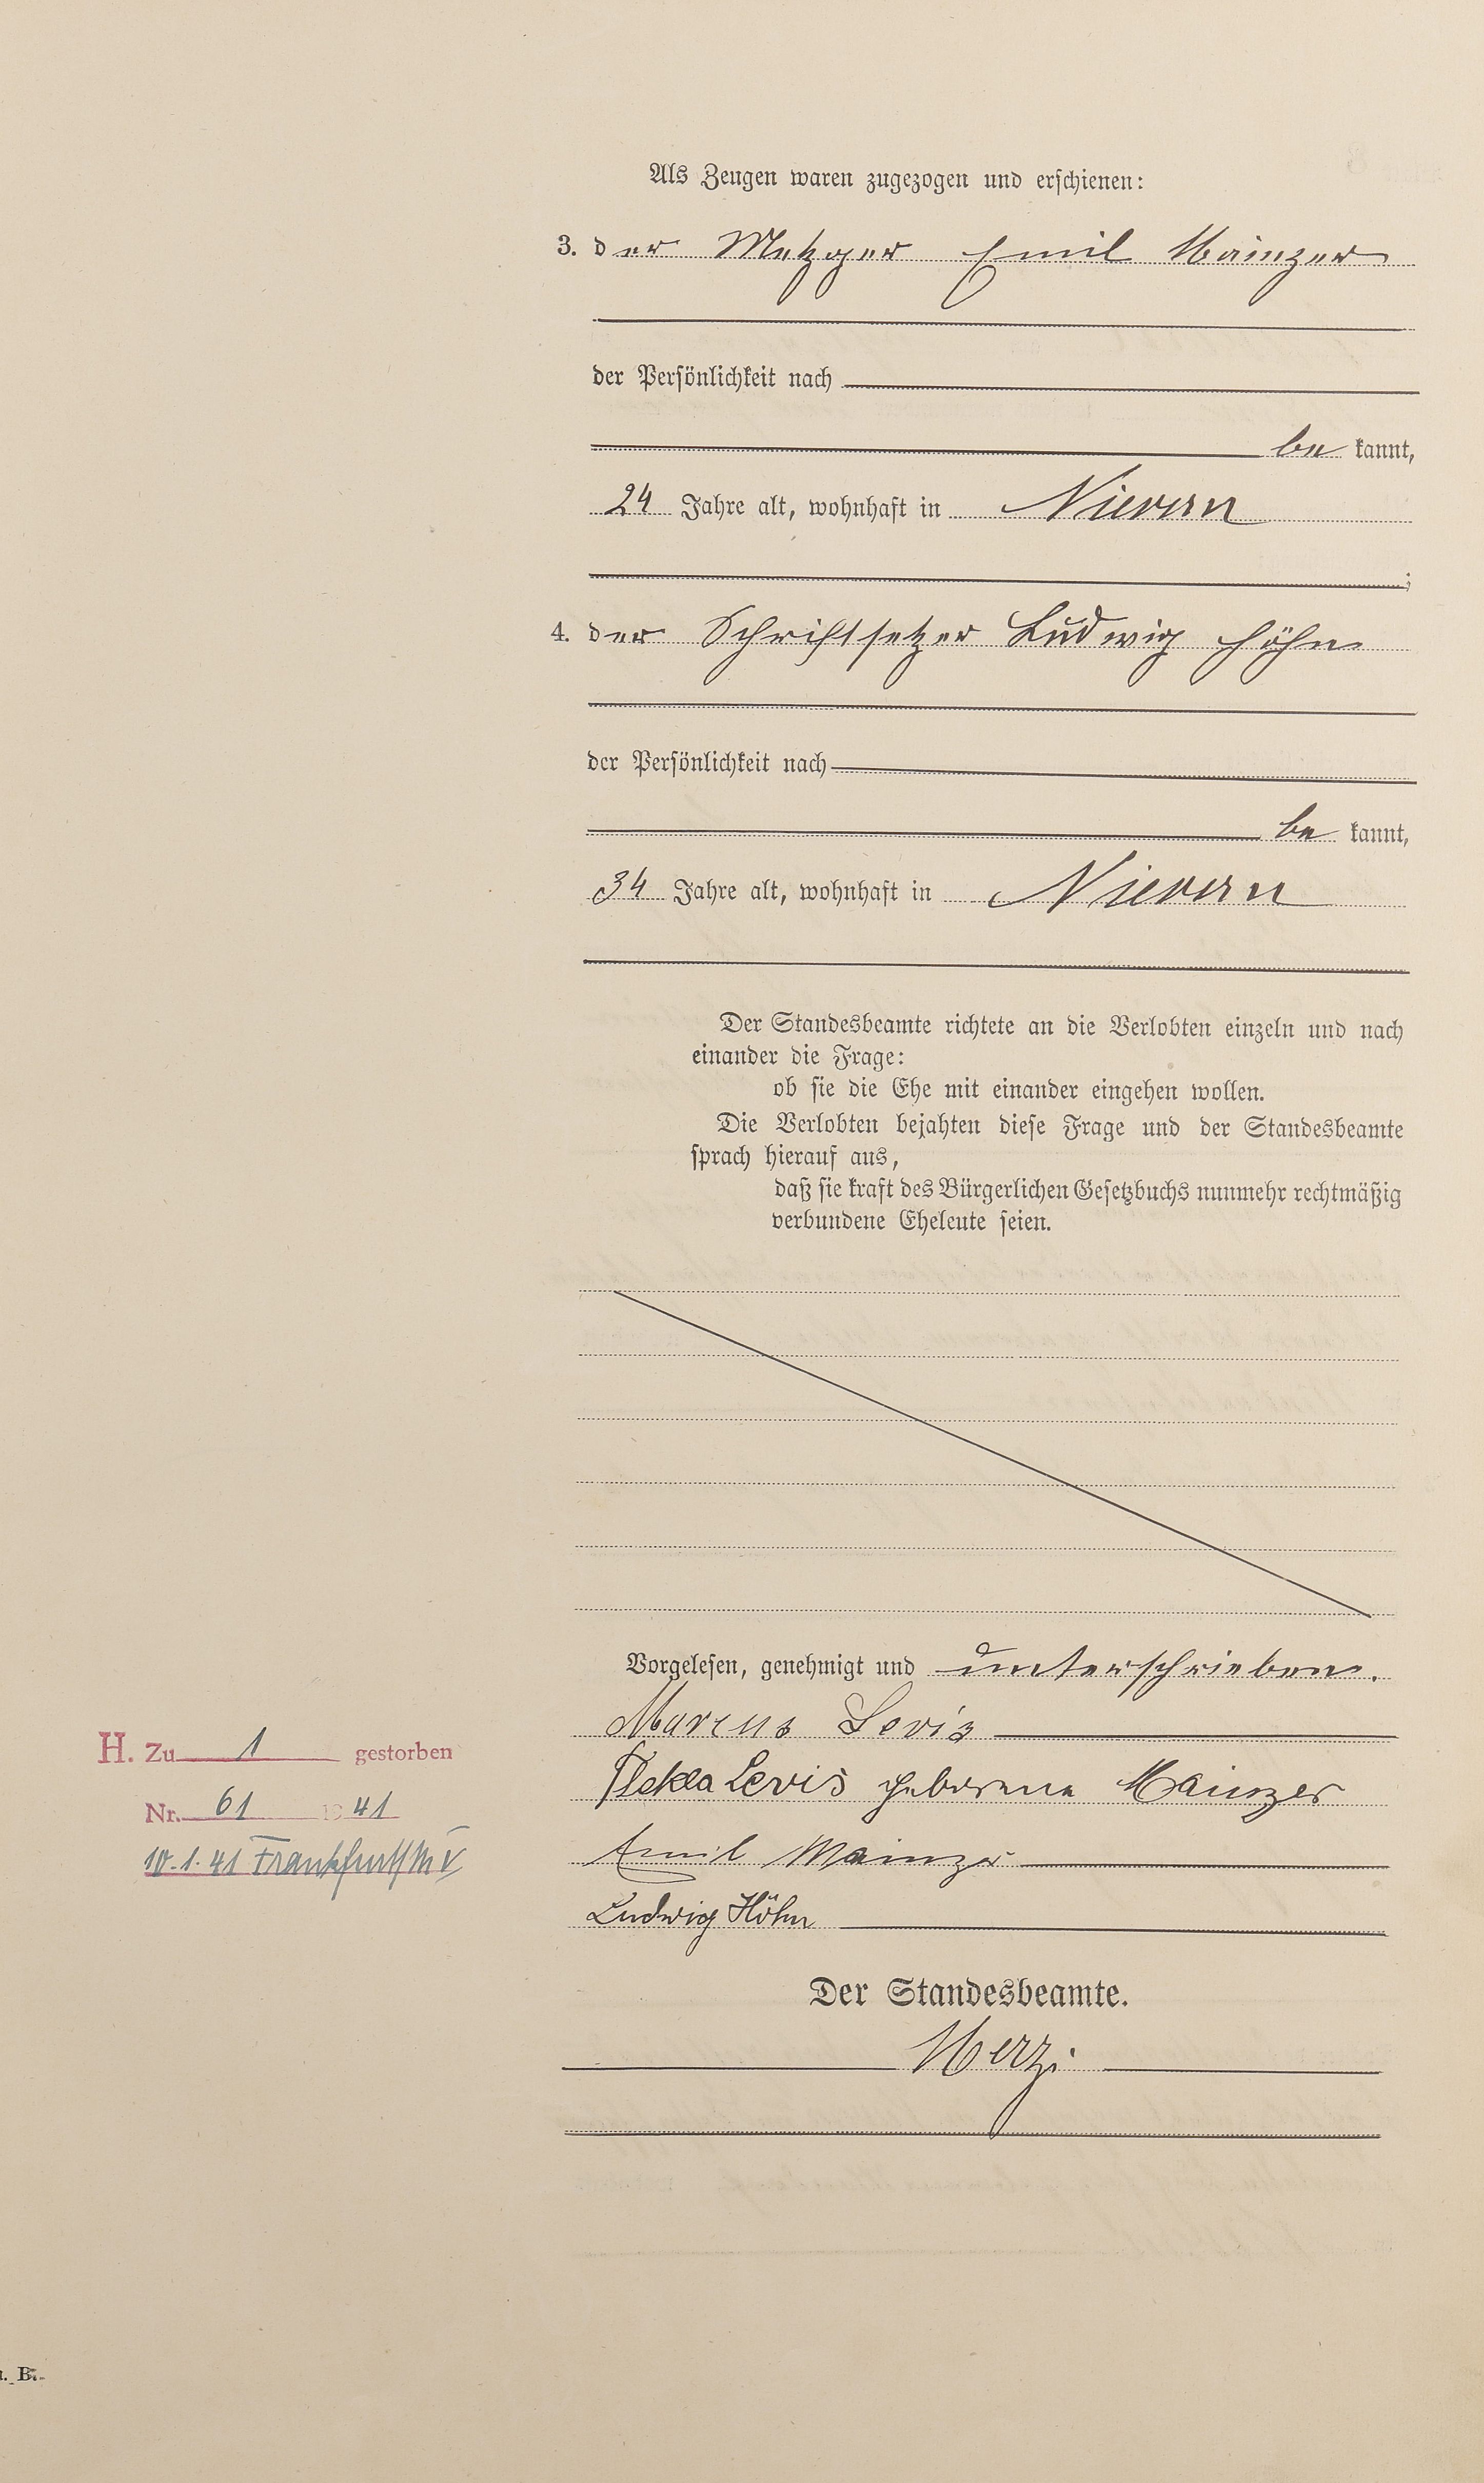 Als Zeugen waren zugezogen und erschienen:
3. der Metzger Emil Mainzer
der Persönlichkeit nach
be kannt,
24 Jahre alt, wohnhaft in Nievern
;
4. der Schriftsetzer Ludwig Höhn
der Persönlichkeit nach
be kannt,
34 Jahre alt, wohnhaft in Nievern
Der Standesbeamte richtete an die Verlobten einzeln und nach
einander die Frage:
ob sie die Ehe mit einander eingehen wollen.
Die Verlobten bejahten diese Frage und der Standesbeamte
sprach hierauf aus,
daß sie kraft des Bürgerlichen Gesetzbuchs nunmehr rechtmäßig
verbundene Eheleute seien.
Vorgelesen, genehmigt und unterschrieben.
Marcus Levis
Thekla Levis geborene Mainzer
Emil Mainzer
Ludwig Höhn
Der Standesbeamte.
H. Zu 1 gestorben
Nr. 61 1941
10.1.41 Frankfurt/M V
B.